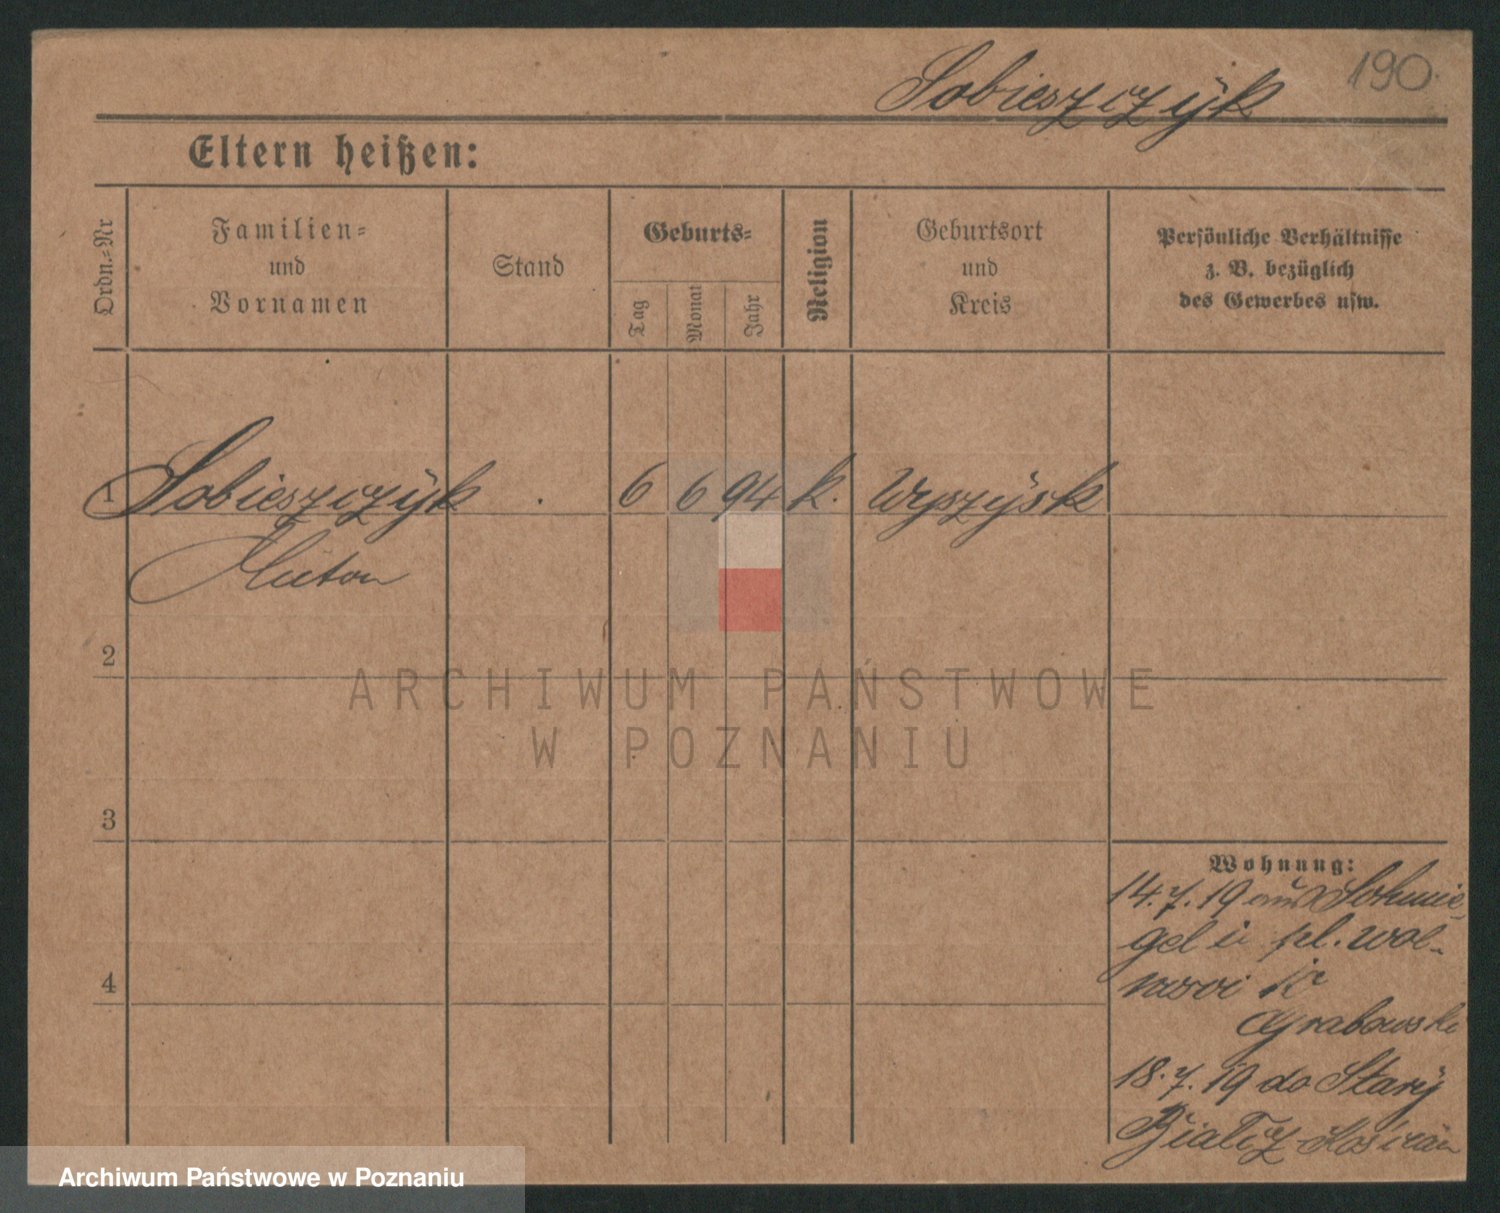 190
Sobieszczyk
Eltern heißen:
Ordn.=Nr
Familien=
und
Vornamen
Stand
Geburts=
Tag
Monat
Jahr
Religion
Geburtsort
und
Kreis
Persönliche Verhältnisse
z. B. bezüglich
des Gewerbes usw.
1 Sobieszczyk . 6 6 94 k. Wyszysk
Anton
2
3
4
Wohnung:
14.7.19 aus Schmie-
gel pl. Wol-
Grabowski
18.7.19 do Stary
Białcz
ARCHIWUM PAŃSTWOWE
W POZNANIU
Archiwum Państwowe w Poznaniu